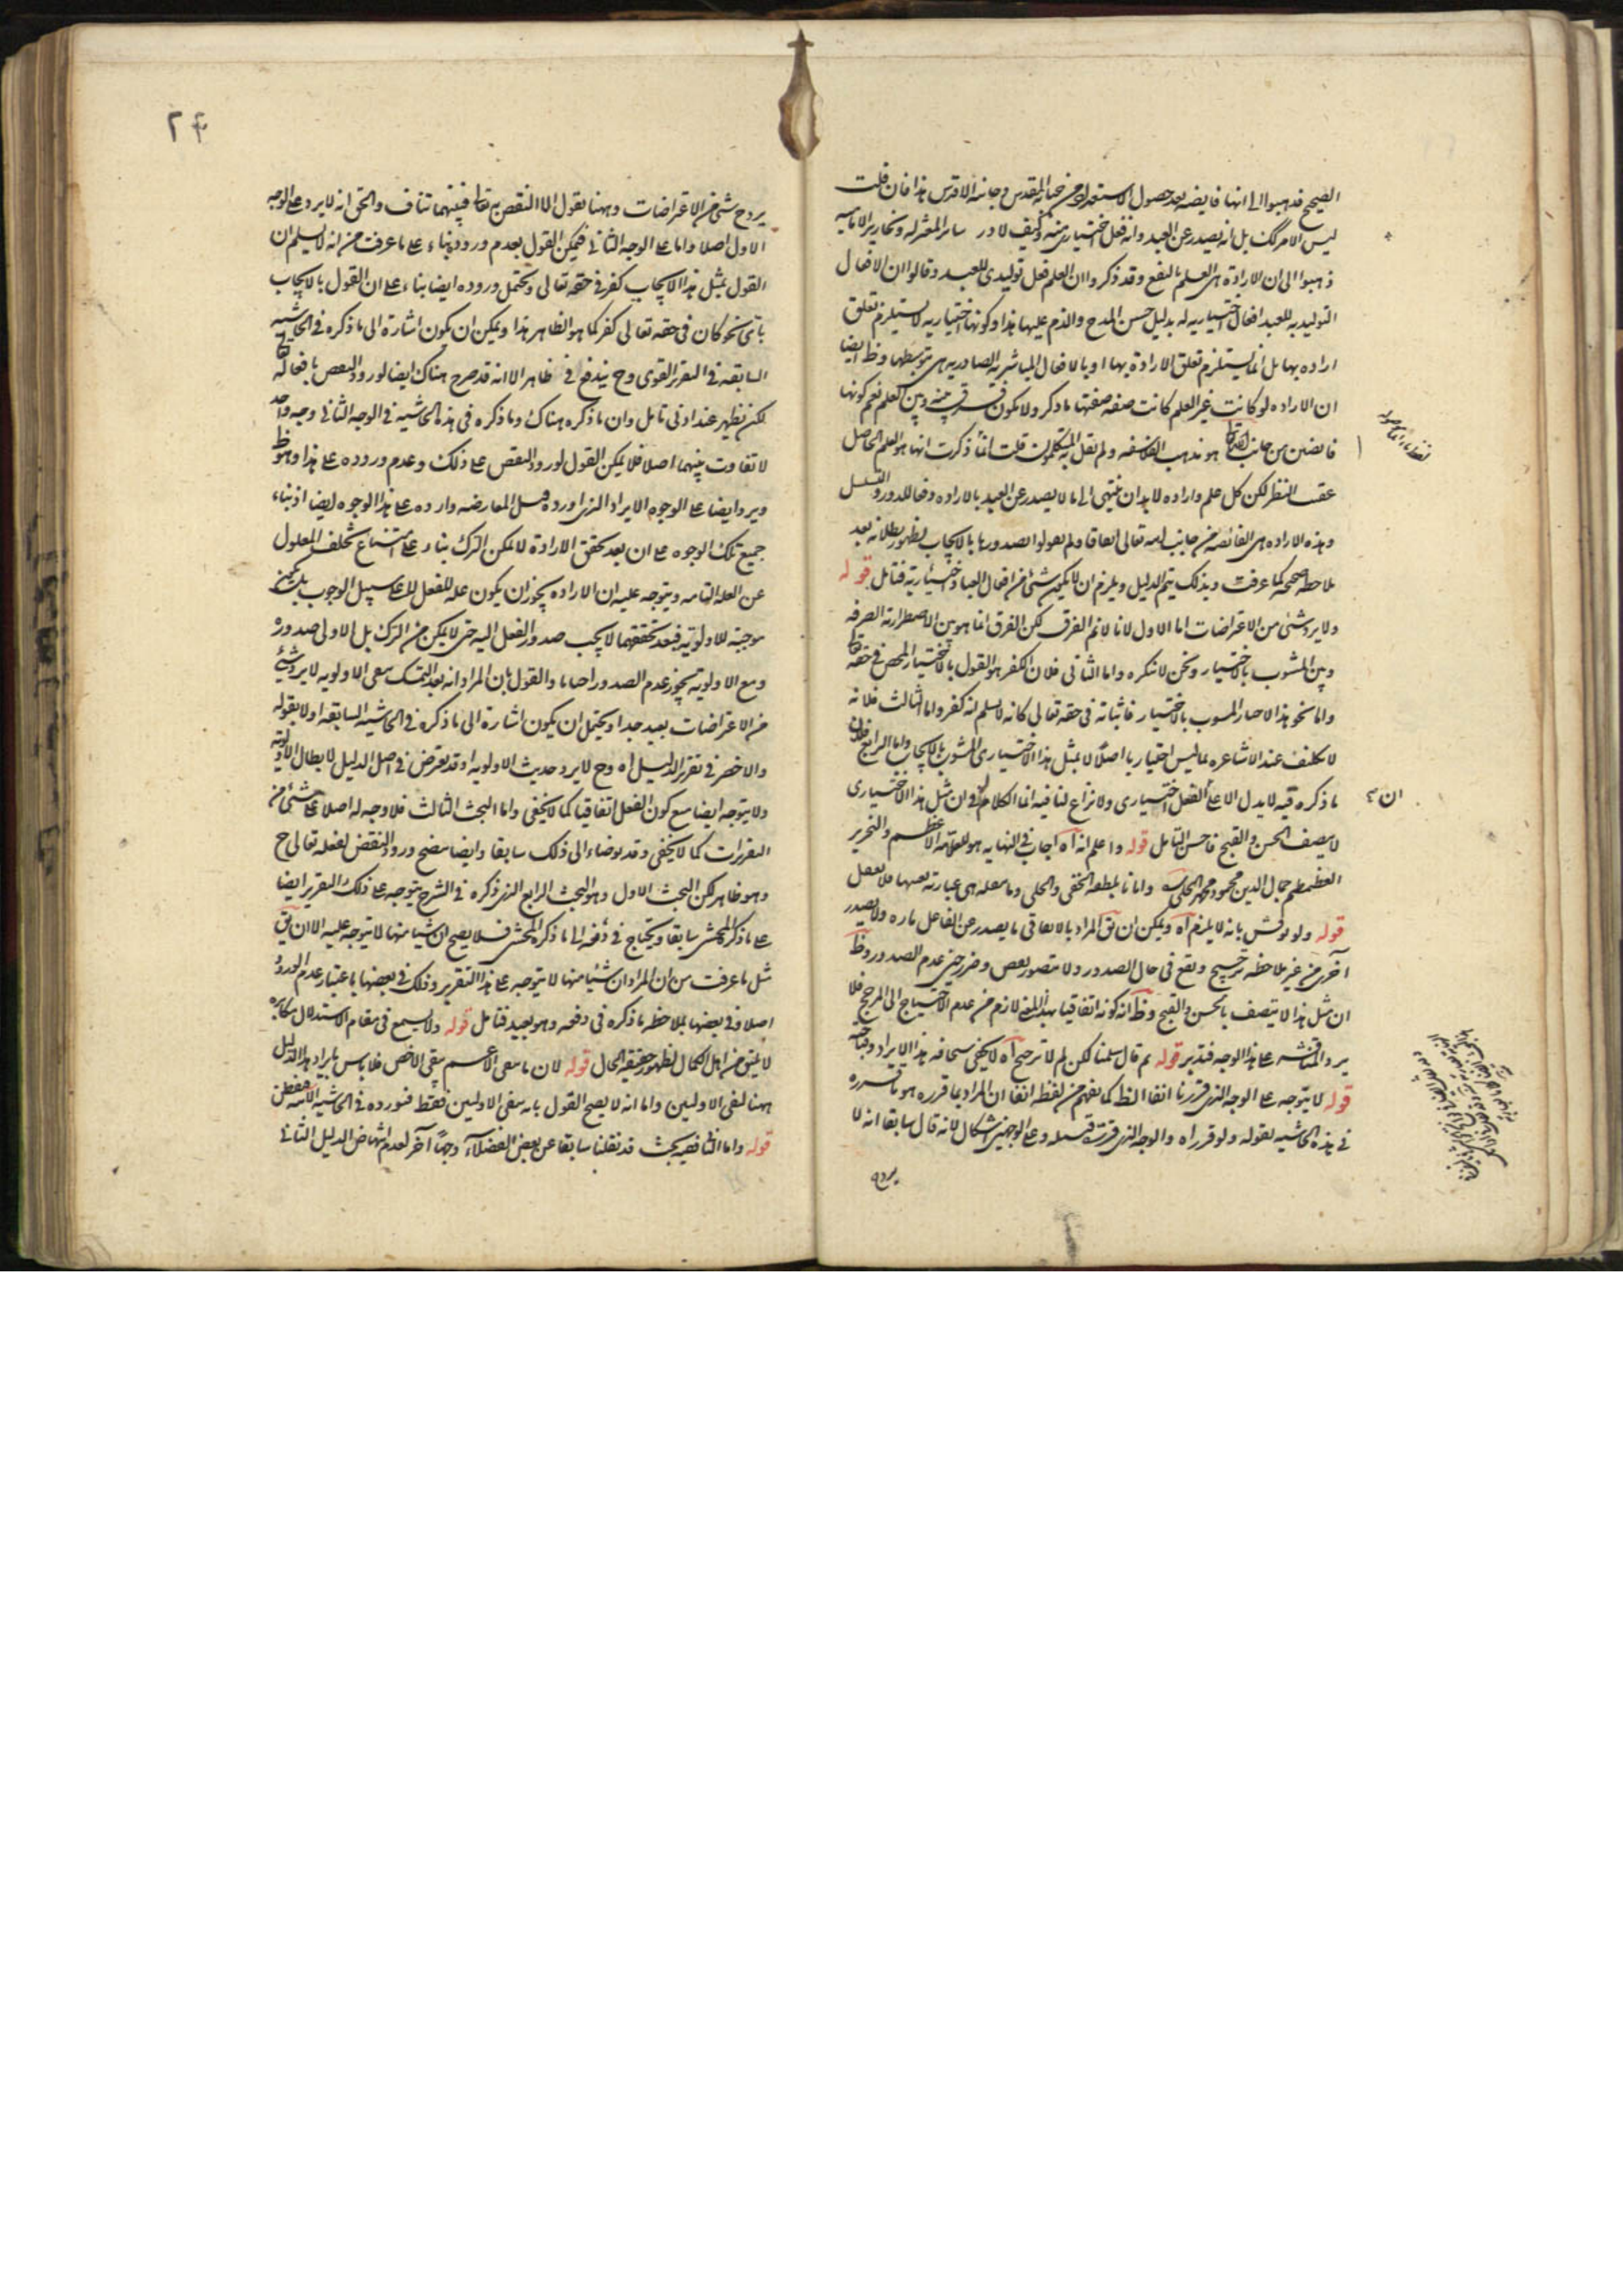 الصحيح فذهبوا الى انها فايضه بعد حصول الاستعداد من جنابه المقدس وجانبه الاقدس هذا فان قلت
ليس الامر كك بل انه يصدر عن العبد وانه فعل اختيارى منه وكيف لا و سائر المعتزله ونحارير الاماميه
ذهبوا الى ان الارادة هى العلم بالنفع وقد ذكروا ان العلم فعل توليدى للعبد وقالوا ان الافعال
التوليديه للعبد افعال اختياريه له بدليل حسن المدح والذم عليها هذا وكونها اختياريه لا يستلزم تعلق
اراده بها بل انما يستلزم تعلق الارادة بها او بالافعال المباشرية الصادرة هى بتوسطها وظ ايضا
ان الاراده لو كانت غير العلم كانت صفه صفتها ما ذكر ولا يكون فرق بينه وبين العلم نعم كونها
فايضين من جانب الله تعالى هو مذهب الفلاسفه ولم يقل به المتكلمون قلت انما ذكرت انها هو العلم الحاصل
عقيب النظر لكن كل علم واراده لا بد ان ينتهى الى ما لا يصدر عن العبد بالاراده دفعا للدور والتسلسل
وهذه الاراده هى الفائضه من جانب الله تعالى اتفاقا ولم يقولوا بصدورها بالايجاب لظهور بطلانه بعد
ملاحظه صحيحه كما عرفت وبذلك يتم الدليل ويلزم ان لا يكون شئ من افعال العباد اختيارية فتامل قوله
ولا يرد شئ من الاعتراضات اما الاول لانا لا نم الفرق لكن الفرق انما هو بين الاضطرارية الصرفه
وبين المشوب بالاختيار ونحن لا ننكره واما الثانى فلان الكفر هو القول بالاختيار المحض فى حقه تعالى
واما نحو هذا الاجبار المشوب بالاختيار فاثباته فى حقه تعالى كانه لا يسلم انه كفر واما الثالث فلانه
لا تكليف عند الاشاعره بما ليس اختياريا اصلا لا بمثل هذا الاختيارى المشوب بالايجاب واما الرابع فلان
ما ذكره فيه لا يدل الا على الفعل اختيارى ولا نزاع لنا فيه انما الكلام فى ان مثل هذا الاختيارى
ان
لا يتصف بالحسن والقبح فاحسن التامل قوله واعلم انه اه اجاب فى النهايه هو للعلامة الاعظم والنحرير
قوله ولو نوقش بانه لا يلزم اه ويمكن ان يق المراد بالاتفاقى ما يصدر عن الفاعل تاره ولا يصدر
اخرى من غير ملاحظه ترجيح وتقع فى حال الصدور ولا يتصور بعض وضرر حين عدم الصدور وظ
ان مثل هذا لا يتصف بالحسن والقبح وظ انه كونه اتفاقيا بهذا المعنى لازم من عدم الاحتياج الى المرجح فلا
يرد المناقشه على هذا الوجه فتدبر قوله ثم قال سلمنا لكن لم لا ترجيح اه لا يخفى سخافه هذا الايراد
قوله لا يتوجه على الوجه الذى قررنا انفا الظ كما يفهم من لفظه انفا ان المراد بما قرره هو ما قرره
فى هذه الحاشيه بقوله ولو قرر اه والوجه الذى قررت قبله وعلى الوجهين اشكال لانه قال سابقا انه لا
يرد ح
٢٤
يرد ح شئ من الاعتراضات وههنا نقول الا النقض به تعالى فبينهما تناف والحق انه لا يرد على الوجه
الاول اصلا واما على الوجه الثانى فيمكن القول بعدم وروده بناء على ما عرفت من انه لا يسلم ان
القول بمثل هذا الايجاب كفر فى حقه تعالى ويحتمل وروده ايضا بناء على ان القول بالايجاب
باى نحو كان فى حقه تعالى كفر كما هو الظاهر هذا ويمكن ان يكون اشارة الى ما ذكره فى الحاشيه
السابقه فى التقرير القوى وح يندفع فى ظاهر الا انه قد صرح هناك ايضا لورود النقض بافعاله تعالى
لكن يظهر عند ادنى تامل وان ما ذكره هناك وما ذكره فى هذه الحاشيه فى الوجه الثانى وجه واحد
لا تفاوت بينهما اصلا فلا يمكن القول لورود النقض على ذلك وعدم وروده على هذا وهو ظ
ويرد ايضا على الوجوه الايراد الذى اورده قبل المعارضه وارده على هذا الوجوه ايضا اذ بناء
جميع تلك الوجوه على ان بعد تحقق الارادة لا يمكن الترك بناء على امتناع تخلف المعلول
عن العله التامه ويتوجه عليه ان الاراده يجوز ان يكون عله للفعل لا على سبيل الوجوب بل يكون
موجبة للاولوية فبعد تحققهما لا يجب صدور الفعل اليه حتى لا يمكن من الترك بل الاولى صدوره
ومع الاولوية يجوز عدم الصدور احيانا والقول بان المراد انه بعد التمسك بنفى الاولويه لا يرد شئ
من الاعتراضات بعيد جدا ويحتمل ان يكون اشارة الى ما ذكره فى الحاشية السابقه اولا بقوله
والاخصر فى تقرير الدليل اه وح لا يرد حديث الاولويه اذ قد تعرض فى اصل الدليل لابطال الاولويه
ولا يتوجه ايضا منع كون الفعل اتفاقيا كما لا يخفى واما البحث الثالث فلا وجه له اصلا على شئ من
التقريرات كما لا يخفى وقد اومأنا الى ذلك سابقا وايضا يتضح ورود النقض لفعله تعالى ح
وهو ظاهر لكن البحث الاول وهو البحث الرابع الذى ذكره فى الشرح يتوجه على ذلك التقرير ايضا
على ما ذكر المحشى سابقا ويحتاج فى دفعه الى ما ذكره المحشى فلا يصح ان شيئا منها لا يتوجه عليه الا ان يق
مثل ما عرفت من ان المراد ان شيئا منها لا يتوجه على هذا التقرير وذلك فى بعضها باعتبار عدم الورود
اصلا وفى بعضها بملاحظه ما ذكره فى دفعه وهو بعيد فتامل قوله ولا يسمع فى مقام الاستدلال مكابره
لا يليق من اهل الكمال لظهور حقيقة الحال قوله لان ما ينفى الاعم ينفى الاخص فلا باس بايراد هذا الدليل
ههنا لنفى الاولين واما انه لا يصح القول بانه ينفى الاولين فقط فنورده فى الحاشيه الاتيه
قوله واما الثانى ففيه بحث قد نقلنا سابقا عن بعض الفضلاء وجها آخر لعدم انتهاض الدليل الثانى